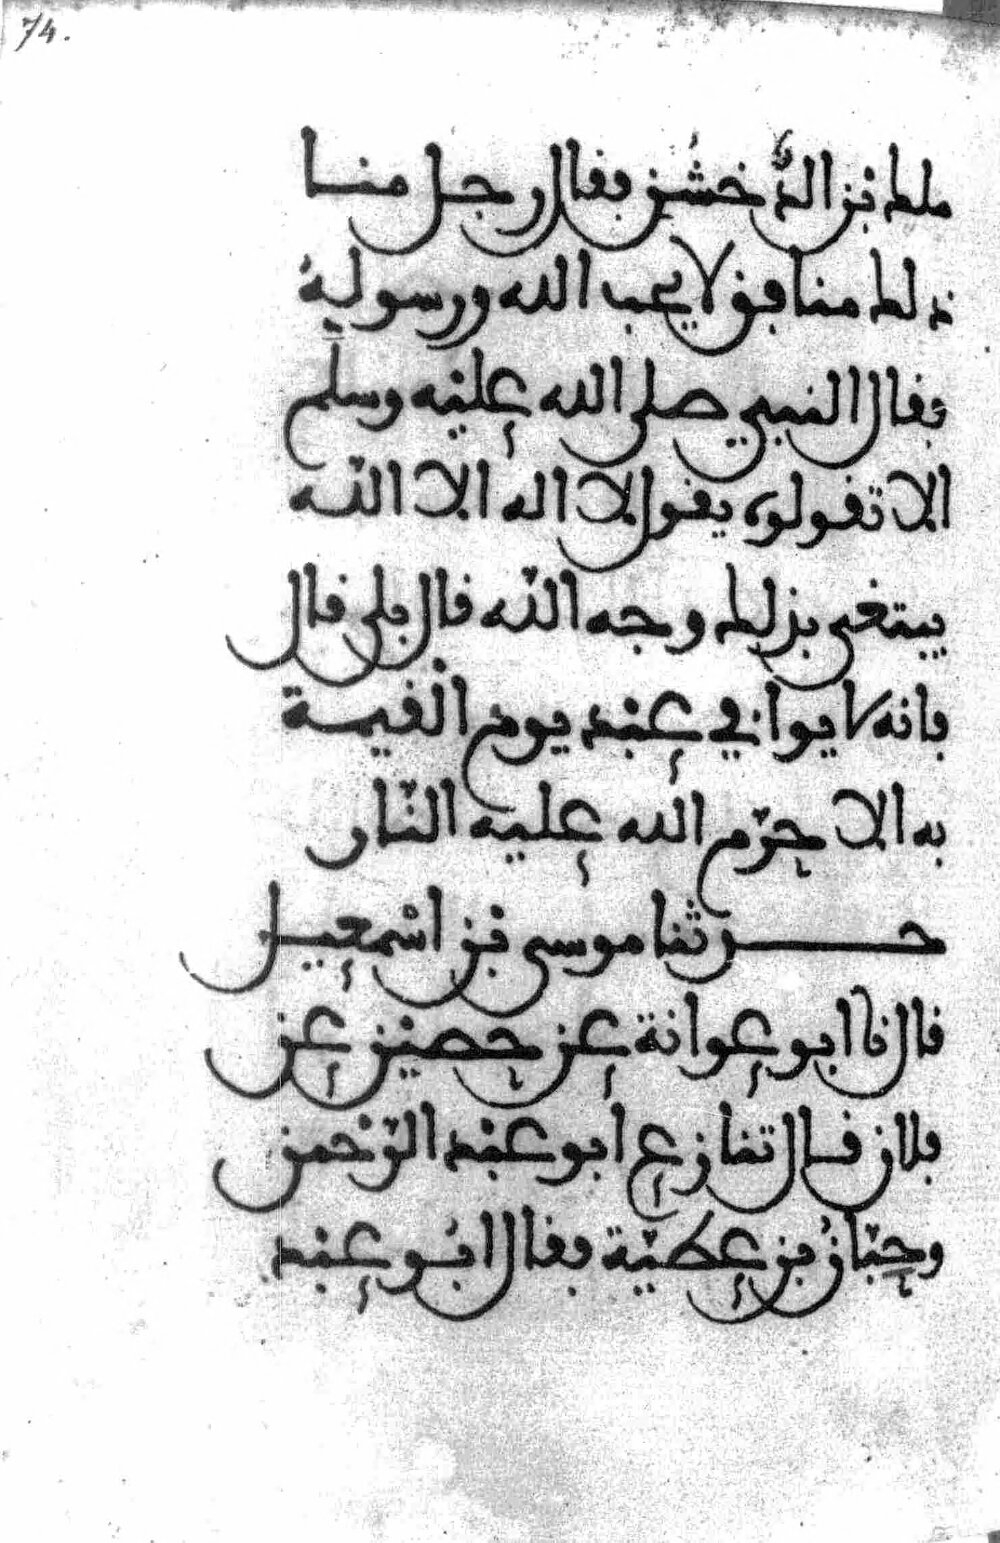 74.
ملك بن الدخشن فقال رجل منا
ذلك منافق لا يحب الله ورسوله
فقال النبي صلى الله عليه وسلم
الا تقولوه يقول لا اله الا الله
يبتغي بذلك وجه الله قال بلى قال
فانه لا يوافي عبد يوم القيمة
به الا حرم الله عليه النار
حدثنا موسى بن اسمعيل
قال نا ابو عوانة عن حصين عن
فلان قال تنازع ابو عبد الرحمن
وحبان بن عطية فقال ابو عبد